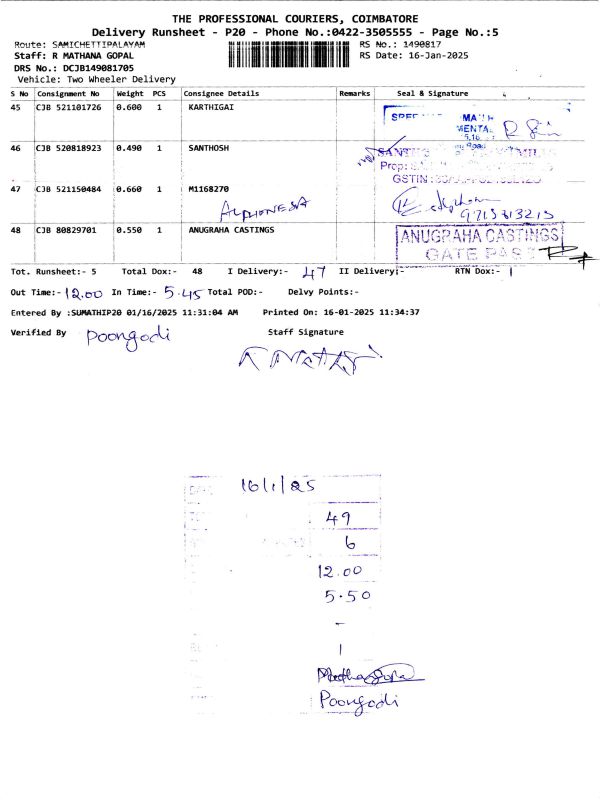 THE PROFESSIONAL COURIERS, COIMBATORE
Delivery Runsheet - P20 - Phone No.:0422-3505555 - Page No.:5
Route: SAMICHETTIPALAYAM RS No.: 1490817
Staff: R MATHANA GOPAL RS Date: 16-Jan-2025
DRS No.: DCJB149081705
Vehicle: Two Wheeler Delivery
S No Consignment No Weight PCS Consignee Details Remarks Seal & Signature
45 CJB 521101726 0.600 1 KARTHIGAI
46 CJB 520818923 0.490 1 SANTHOSH
47 CJB 521150484 0.660 1 M1168270
ALPHONESA
9715313215
48 CJB 80829701 0.550 1 ANUGRAHA CASTINGS
ANUGRAHA CASTINGS
GATE PASS
Tot. Runsheet:- 5 Total Dox:- 48 I Delivery:- 47 II Delivery:- RTN Dox:- 1
Out Time:- 12.00 In Time:- 5.45 Total POD:- Delvy Points:-
Entered By :SUMATHIP20 01/16/2025 11:31:04 AM Printed On: 16-01-2025 11:34:37
Verified By Poongodi Staff Signature
16/1/25
49
6
12.00
5.50
-
1
Poongodi